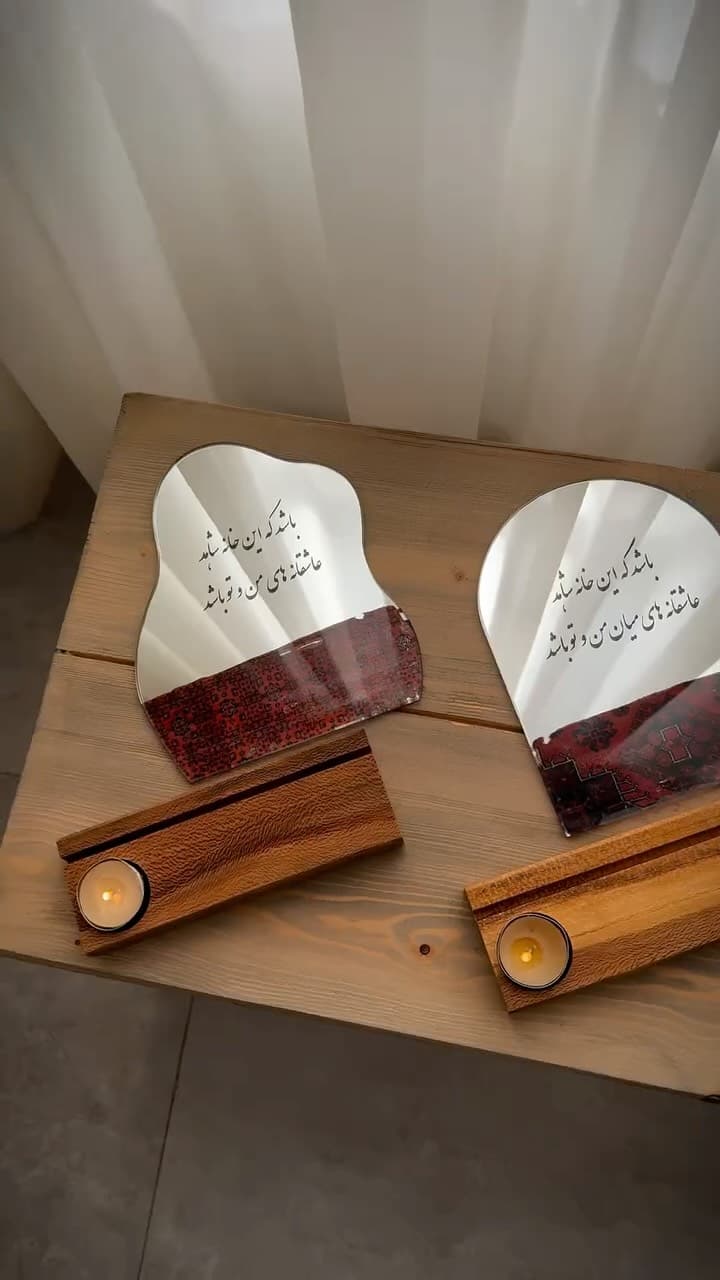 باشد که این خانه شاهد
عاشقانه های من و تو باشد
باشد که این خانه شاهد
عاشقانه های میان من و تو باشد